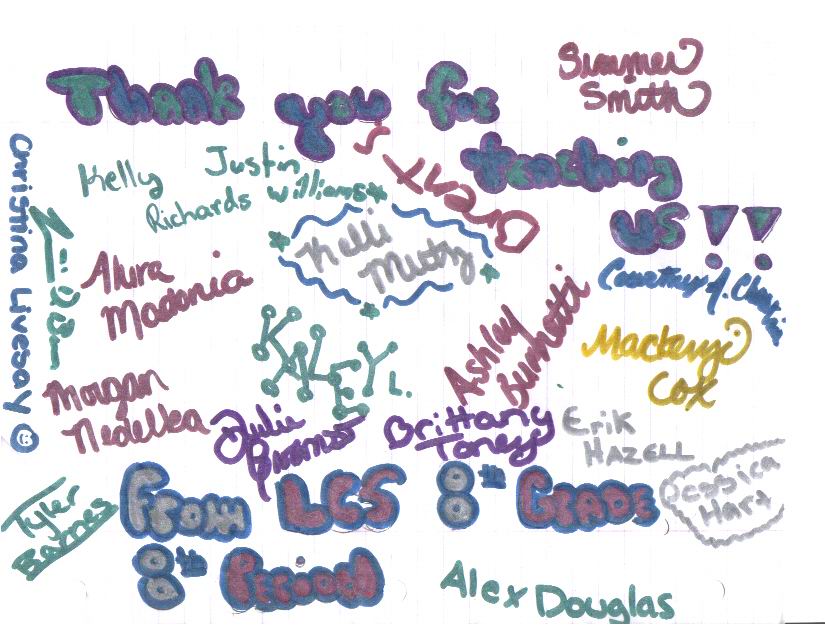 Thank you for
teaching
us!!
Summer
Smith
Kelly
Richards
Justin
Williams
Grant S
Christina Livesay
Kelli
Mutz
Alura
Madonia
Courtney A.
Kayley L.
Ashley
Mackenzie
Cox
Morgan
Nedelka
Julie
Brittany
Toney
Erik
Hazell
Jessica
Hart
Tyler
Barnes
From LCS 8th Grade
8th Period
Alex Douglas